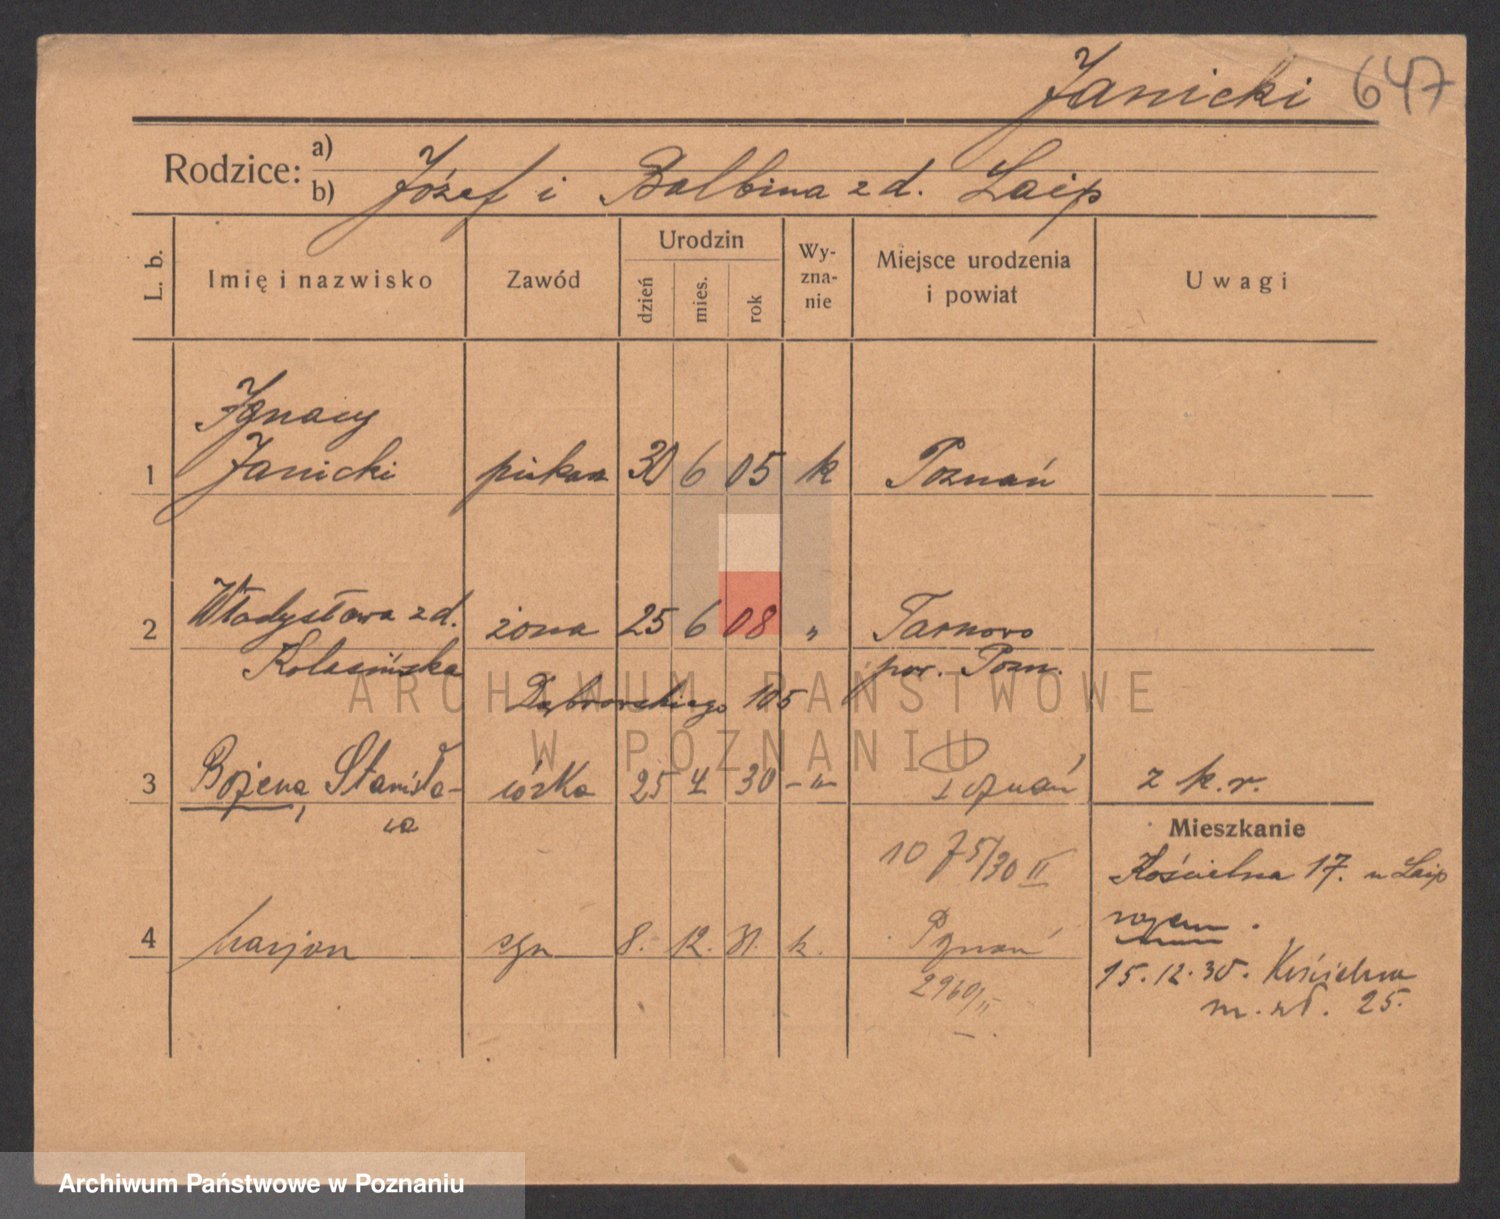 Janicki 647
Rodzice: a)
b) Józef i Balbina z d. Laip
L. b.
Imię i nazwisko
Zawód
Urodzin
dzień
mies.
rok
Wy-
zna-
nie
Miejsce urodzenia
i powiat
Uwagi
Ignacy
1 Janicki piekarz 30 6 05 k Poznań
2 Władysława z d. żona 25 6 08 " Tarnowo
Kolasińska pow. Pozn.
Dąbrowskiego 105
3 Bożena, Stanisła- córka 25 4 30 -"- Poznań z k.r.
wa
Mieszkanie
10 75/30 II
Kościelna 17. u Laip
razem.
4 Marjan syn 8. 12. 31. k. Poznań
2960/II
15.12.30. Kościelna
25.
ARCHIWUM PAŃSTWOWE
W POZNANIU
Archiwum Państwowe w Poznaniu